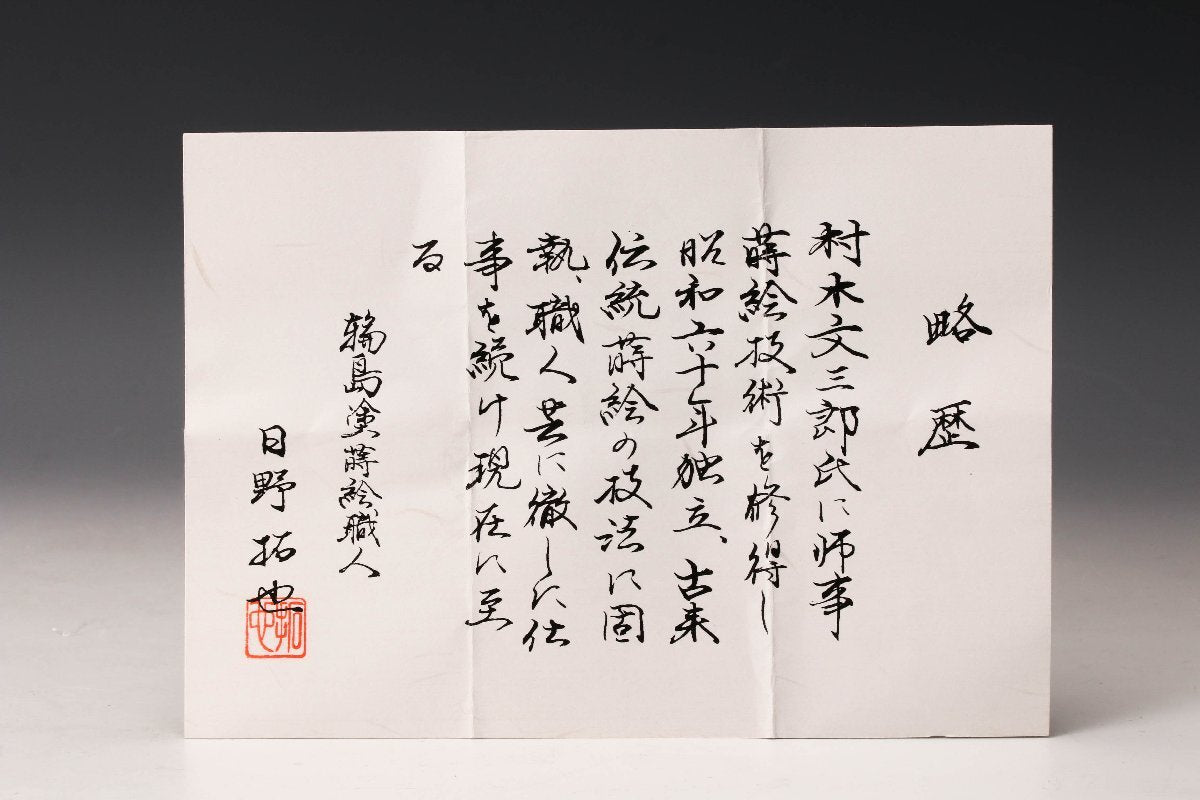 略歴
村木文三郎氏に師事
蒔絵技術を修得し
昭和六十年独立、古来
伝統蒔絵の技法に固
執、職人芸に徹した仕
事を続け現在に至
る
輪島塗蒔絵職人
日野拓也
拓也